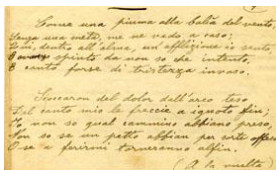 Come una piuma alla balìa del vento,
Senza una meta, me ne vado a caso;
dentro all'alma, un afflizione io sento
spinto da non so che intento,
E canto forse di tristezza invaso.
Scoccaron del dolor dall'arco teso
Del canto mio le freccie a ignoto fin;
Io non so qual cammino abbian preso,
Non so se un petto abbian per sorte offeso
O se a ferirmi torneranno alfin.
(A la vuelta)